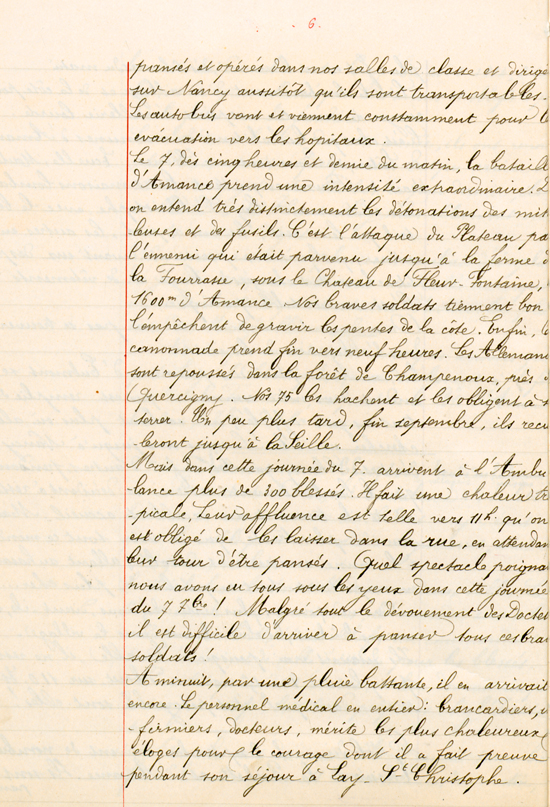 6.
pansés et opérés dans nos salles de classe et dirigé
sur Nancy aussitôt qu'ils sont transportables.
Les autobus vont et viennent constamment pour l
évacuation vers les hopitaux.
Le 7, dès cinq heures et demie du matin, la bataill
d'Amance prend une intensité extraordinaire.
on entend très distinctement les détonations des mit
leuses et des fusils. C'est l'attaque du Plateau pa
l'ennemi qui était parvenu jusqu'à la ferme d
la Fourrasse, sous le Chateau de Fleur-Fontaine,
1600m d'Amance Nos braves soldats tiennent bon
l'empêchent de gravir les pentes de la côte. Enfin, l
canonnade prend fin vers neuf heures. Les Alleman
sont repoussés dans la forêt de Champenoux, près
Quercigny. Nos 75 les hachent et les obligent à s
terrer. Un peu plus tard, fin septembre, ils recu
leront jusqu'à la Seille.
Mais dans cette journée du 7. arrivent à l'Ambu
lance plus de 300 blessés. Il fait une chaleur tro
picale, leur affluence est telle vers 11h. qu'on
est obligé de les laisser dans la rue, en attendan
leur tour d'être pansés. Quel spectacle poigna
nous avons eu tous sous les yeux dans cette journée
du 7 7bre! Malgré tout le dévouement des Docte
il est difficile d'arriver à panser tous ces bra
soldats!
A minuit, par une pluie battante, il en arrivait
encore. Le personnel médical en entier: brancardiers, in
firmiers, docteurs, mérite les plus chaleureux
éloges pour le courage dont il a fait preuve
pendant son séjour à Lay-St-Christophe.